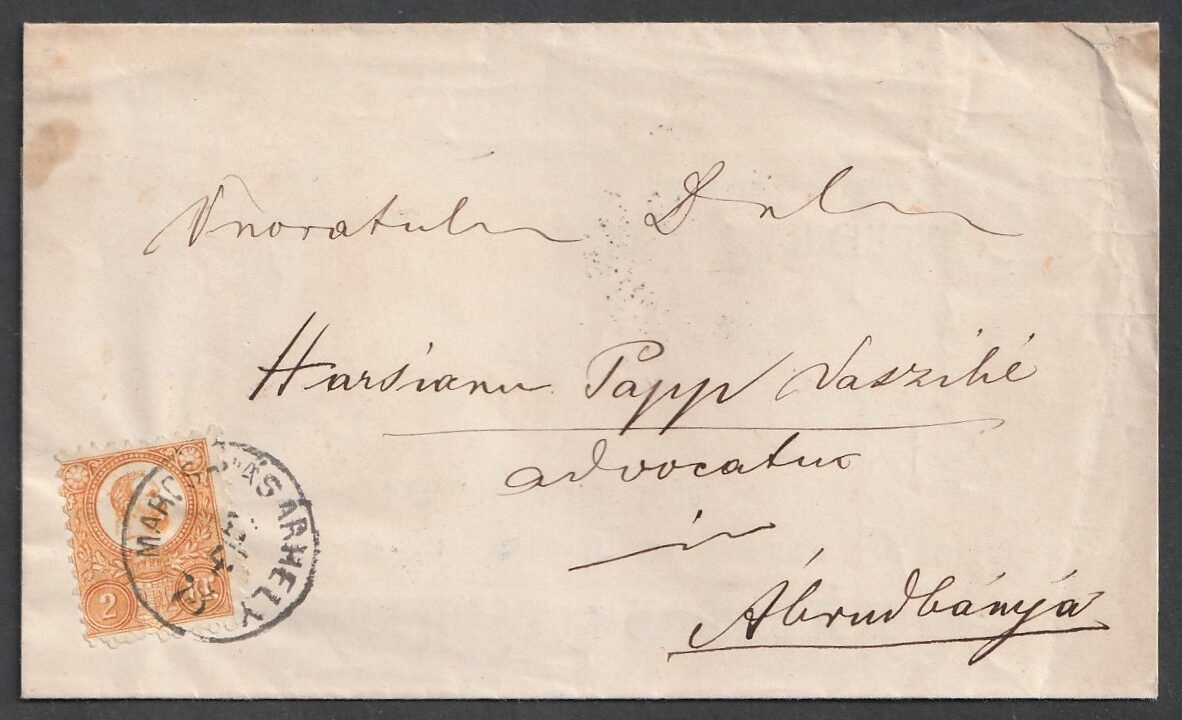 Onoratului Dnl
Harsianu Papp Vaszilié
advocatu
in
Ábrudbánya
MAROS VÁSÁRHELY
2